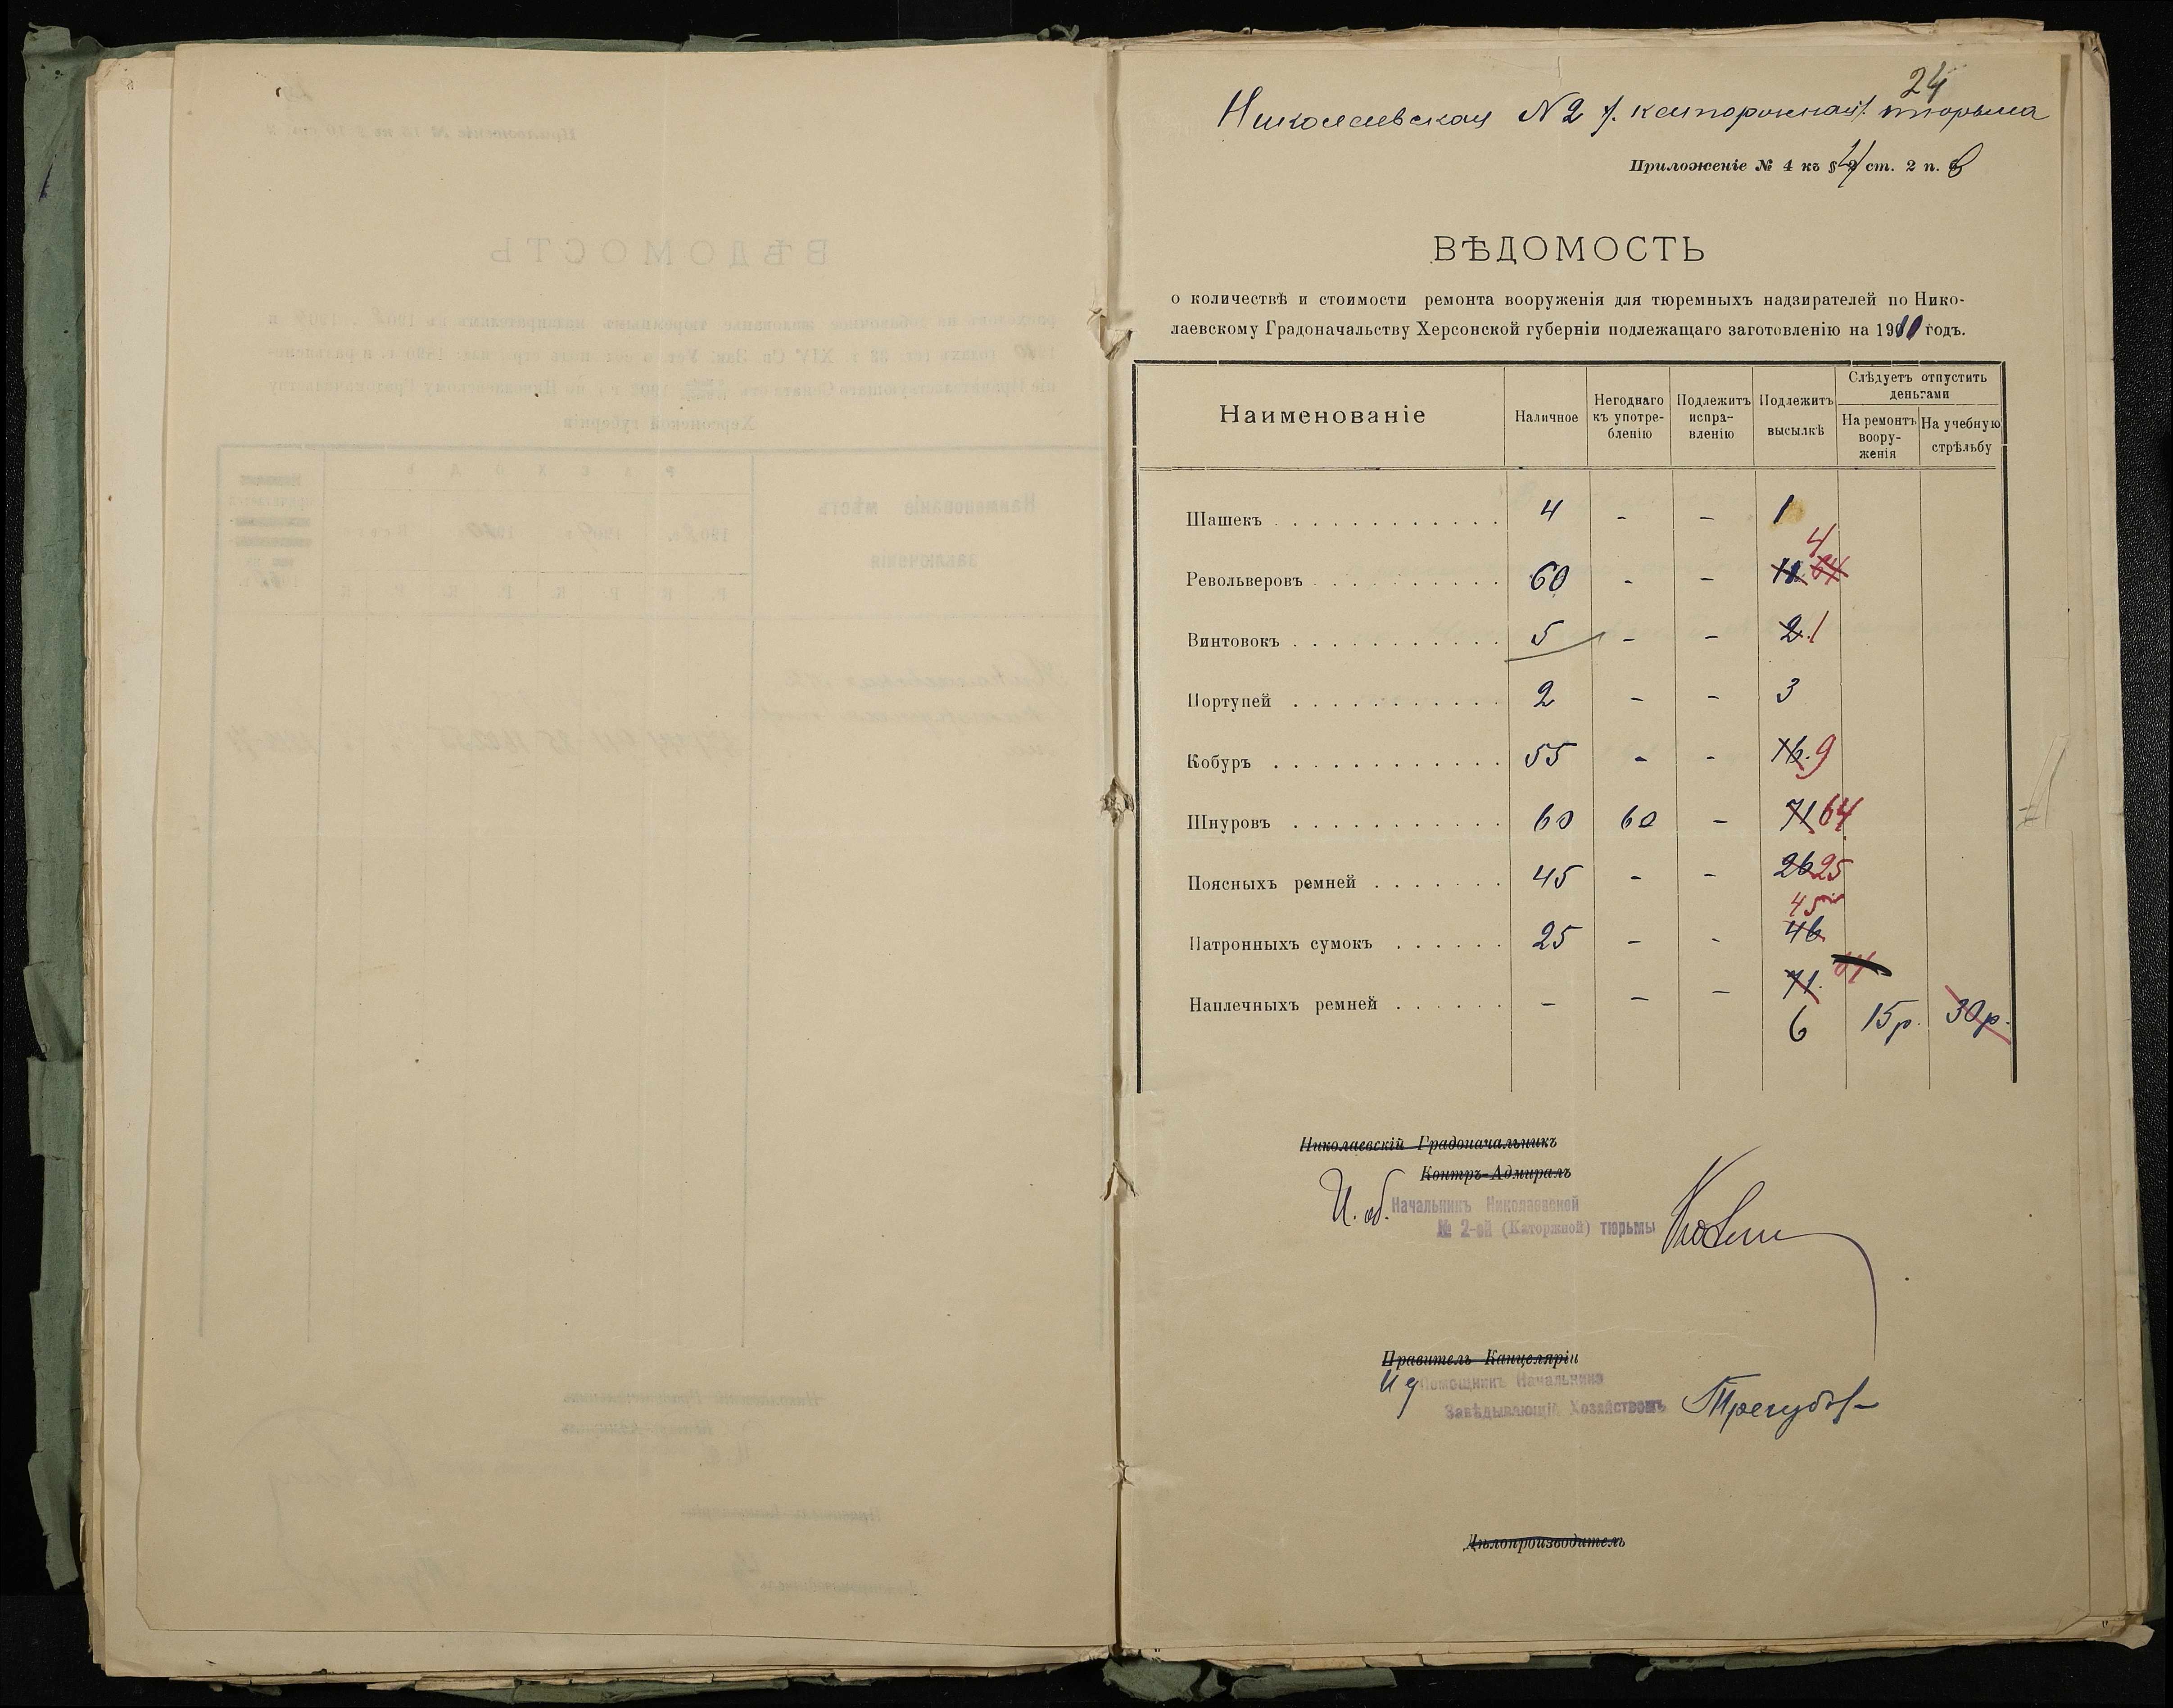 24
Николаевская № 2 /. каторжная /. тюрьма
Приложеніе № 4 къ § 4 ст. 2 п. в
ВѢДОМОСТЬ
о количествѣ и стоимости ремонта вооруженія для тюремныхъ надзирателей по Нико-
лаевскому Градоначальству Херсонской губерніи подлежащаго заготовленію на 1910 годъ.
Наименованіе Наличное Негоднаго къ употре-бленію Подлежитъ испра-вленію Подлежитъ высылкѣ Слѣдуетъ отпустить деньгами На ремонтъ воору-женія На учебную стрѣльбу
Шашекъ 4 - - 1
Револьверовъ 60 - - 11 64 4
Винтовокъ 5 - - 2. 1
Портупей 2 - - 3
Кобуръ 55 - - 16. 9
Шнуровъ 60 60 - 71 64
Поясныхъ ремней 45 - - 26 25
Патронныхъ сумокъ 25 - - 46 45
Наплечныхъ ремней - - - 71. 64
6 15 р. 30 р.
Николаевскій Градоначальникъ
Контръ-Адмиралъ
И. об. Начальникъ Николаевской
№ 2-ой (Каторжной) тюрьмы
Правитель Канцеляріи
И д Помощникъ Начальника
Завѣдывающій Хозяйствомъ Трегубов
Дѣлопроизводитель